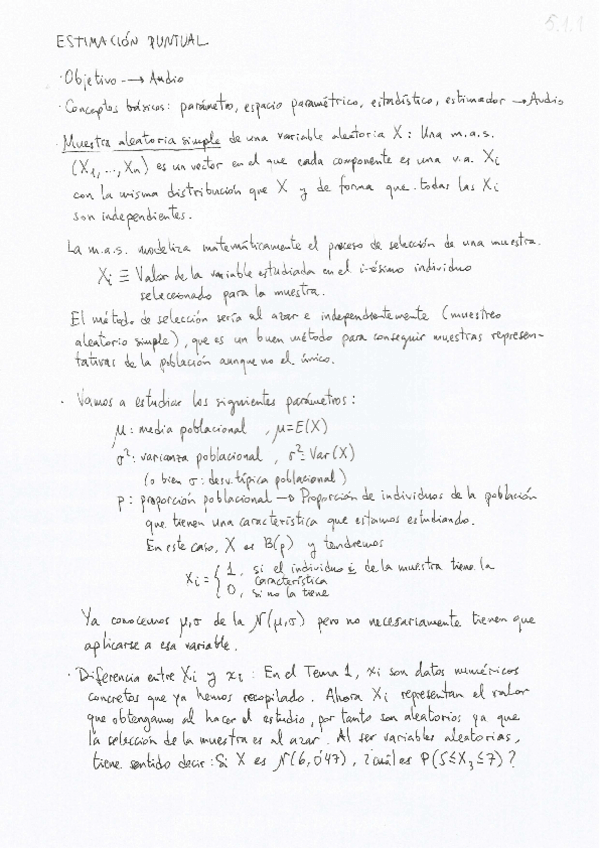 5.1.1
ESTIMACIÓN PUNTUAL
· Objetivo → Audio
· Conceptos básicos: parámetro, espacio paramétrico, estadístico, estimador → Audio
· Muestra aleatoria simple de una variable aleatoria X: Una m.a.s.
(X1, ..., Xn) es un vector en el que cada componente es una v.a. Xi
con la misma distribución que X y de forma que todas las Xi
son independientes.
La m.a.s. modeliza matemáticamente el proceso de selección de una muestra.
Xi ≡ Valor de la variable estudiada en el i-ésimo individuo
seleccionado para la muestra.
El método de selección sería al azar e independientemente (muestreo
aleatorio simple), que es un buen método para conseguir muestras represen-
tativas de la población aunque no el único.
· Vamos a estudiar los siguientes parámetros:
μ: media poblacional, μ=E(X)
σ²: varianza poblacional, σ²=Var(X)
(o bien σ: desv. típica poblacional)
p: proporción poblacional → Proporción de individuos de la población
que tienen una característica que estamos estudiando.
En este caso, X es B(p) y tendremos
Xi = { 1, si el individuo i de la muestra tiene la
característica
0, si no la tiene
Ya conocemos μ,σ de la N(μ,σ) pero no necesariamente tienen que
aplicarse a esa variable.
· Diferencia entre Xi y xi: En el Tema 1, xi son datos numéricos
concretos que ya hemos recopilado. Ahora Xi representan el valor
que obtengamos al hacer el estudio, por tanto son aleatorios ya que
la selección de la muestra es al azar. Al ser variables aleatorias,
tiene sentido decir: Si X es N(6,0'47), ¿cuál es P(5≤X3≤7)?